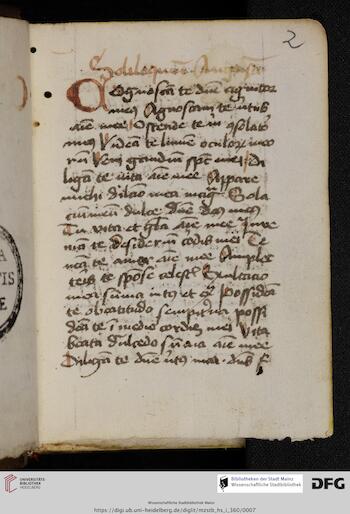 2
Soliloquium Augustini
Cognoscam te dne cognitor
meus Agnoscam te virtus
aie mee Ostende te m consolator
meus Videam te lumen oculorum meo
rum Veni gaudium spc mei
ligam te vita aie mee Appare
michi
cium meum dulce dne deus meus
Tu vita et gla aie mee Inve
niam te desiderium cordis mei Te
neam te amor aie mee Amplec
tar te sponse celestis Exultacio
mea summa intus et Possideam
te beatitudo sempiterna possi
deam te in medio cordis mei Vita
beata dulcedo summa aie mee
Diligam te dne virtus mea
UNIVERSITÄTS-
BIBLIOTHEK
HEIDELBERG
Bibliotheken der Stadt Mainz
Wissenschaftliche Stadtbibliothek
DFG
Wissenschaftliche Stadtbibliothek Mainz
https://digi.ub.uni-heidelberg.de/diglit/mzstb_hs_i_360/0007